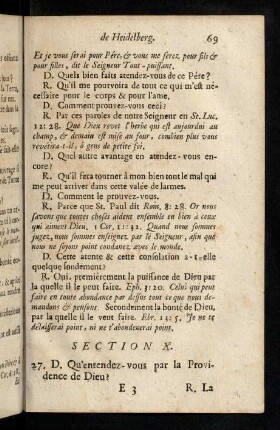 de Heidelberg. 69
Et je vous serai pour Pére, & vous me serez pour fils &
pour filles, dit le Seigneur Tout-puissant.
D. Quels bien faits atendez-vous de ce Pére?
R. Qu'il me pourvoira de tout ce qui m'est né-
cessaire pour le corps & pour l'ame.
D. Comment prouvez-vous ceci?
R. Par ces paroles de notre Seigneur en St. Luc.
12: 28. Que Dieu revet l'herbe qui est aujourdui au
champ, & demain est mise au four, combien plus vous
revetira-t-il, ô gens de petite foi.
D. Quel autre avantage en atendez-vous en-
core?
R. Qu'il fera tourner à mon bien tout le mal qui
me peut arriver dans cette valée de larmes.
D. Comment le prouvez-vous.
R. Parce que St. Paul dit Rom. 8: 28. Or nous
savons que toutes choses aident ensemble en bien à ceux
qui aiment Dieu, 1 Cor. 11: 32. Quand nous sommes
jugez, nous sommes enseignez par le Seigneur, afin que
nous ne soyons point condamnez avec le monde.
D. Cette atente & cette consolation a-t-elle
quelque fondement?
R. Oui, premiérement la puissance de Dieu par
la quelle il le peut faire. Eph. 3: 20. Celui qui peut
faire en toute abondance par dessus tout ce que nous de-
mandons & pensons. Secondement la bonté de Dieu,
par la quelle il le veut faire. Ebr. 13: 5. Je ne te
délaisserai point, ni ne t'abandonerai point.
SECTION X.
27. D. Qu'entendez-vous par la Provi-
dence de Dieu?
E 3 R. La